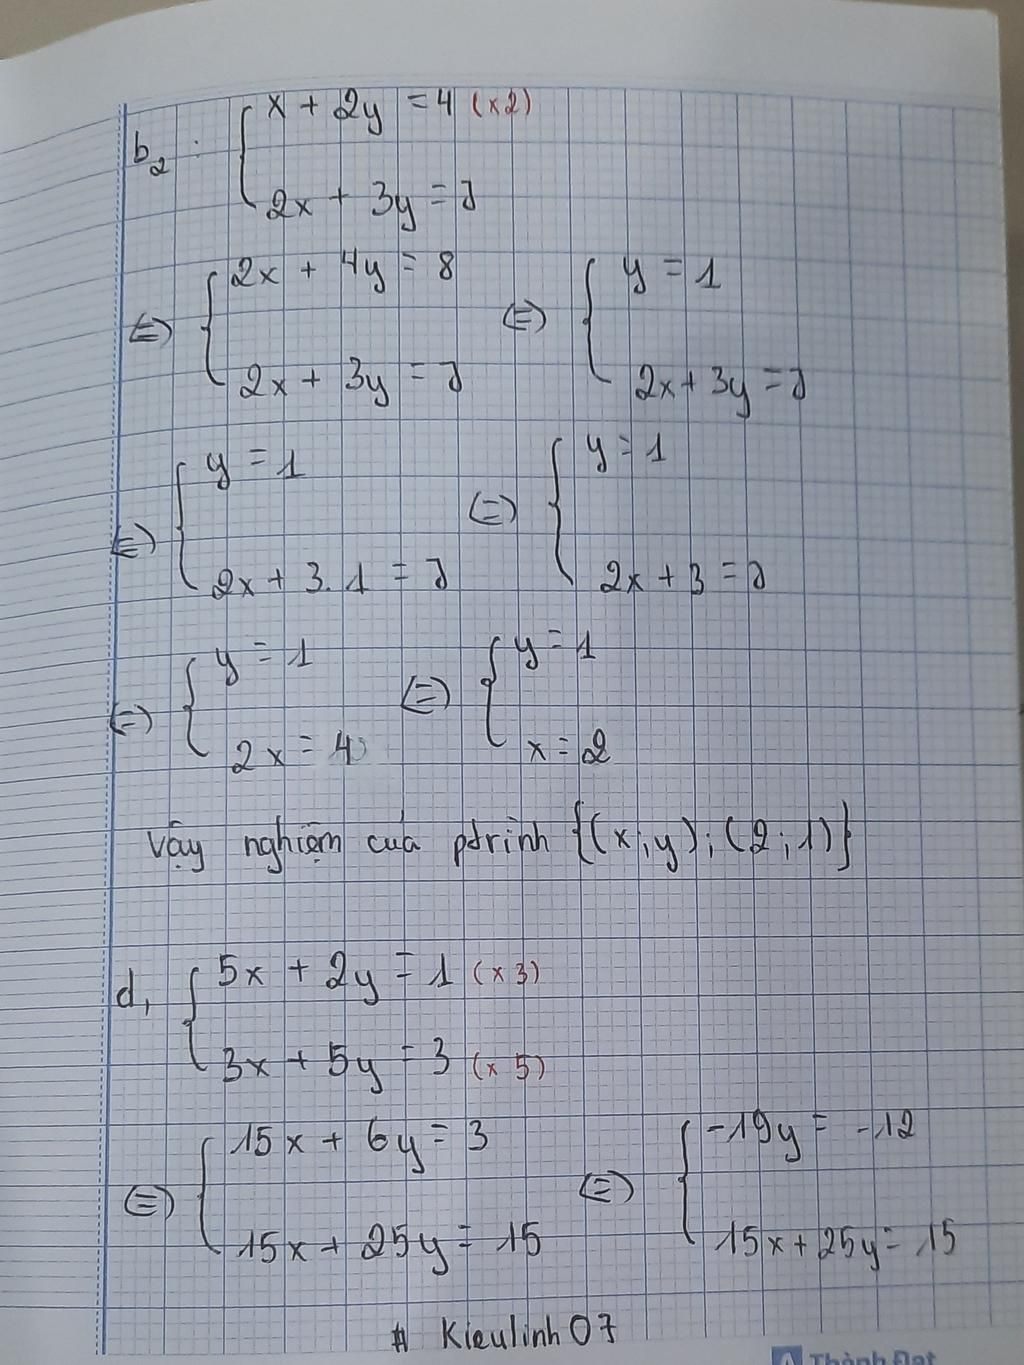 b₂ : { x + 2y = 4 (x2)
2x + 3y = 7
⇔ { 2x + 4y = 8 ⇔ { y = 1
2x + 3y = 7 2x + 3y = 7
⇔ { y = 1 ⇔ { y = 1
2x + 3.1 = 7 2x + 3 = 7
⇔ { y = 1 ⇔ { y = 1
2x = 4 x = 2
Vậy nghiệm của ptrình {(x;y);(2;1)}
d, { 5x + 2y = 1 (x3)
3x + 5y = 3 (x5)
⇔ { 15x + 6y = 3 ⇔ { -19y = -12
15x + 25y = 15 15x + 25y = 15
# Kieulinh 07
Thành Đạt